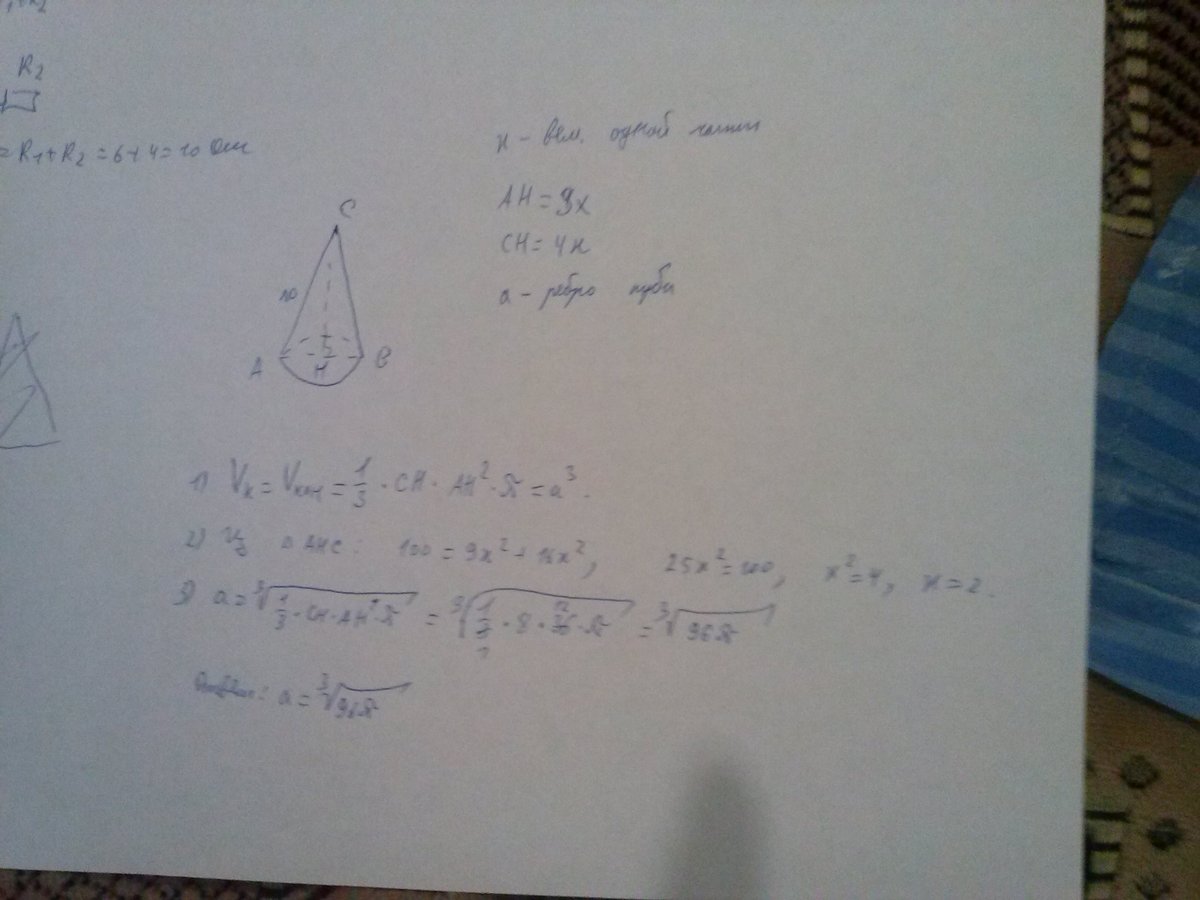 R₂
= R₁ + R₂ = 6 + 4 = 10 Ом
x - вел. одной части
AH = 3x
CH = 4x
a - ребро куба
C
10
A
H
B
1) Vₖ = Vкон = 1/3 · CH · AH² · π = a³.
2) Из △ AHC: 100 = 9x² + 16x², 25x² = 100, x² = 4, x = 2.
3) a = ∛(1/3 · CH · AH² · π) = ∛(1/3 · 8 · 36 · π) = ∛(96π)
12
1
Ответ: a = ∛(96π)